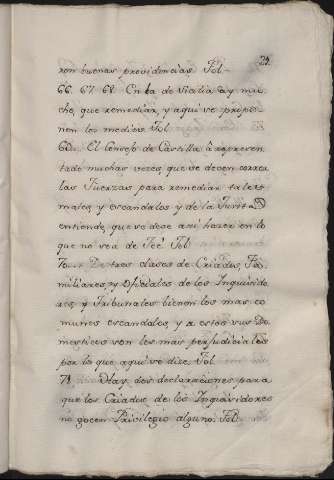 24.
ron buenas providencias. Fol-
66. 67. 68. En la de Sicilia ay mu-
cho, que remediar, y aqui se propo-
nen los medios. Fol.
69. El Consejo de Castilla à represen-
tado muchas veces, que se deven correr
las Fuerzas para remediar tales
males, y escandalos y de la Junta
entiende, que se deve asi hazer en lo
que no sea de Feé. Fol.
70. De tres clases de Criados, Fa-
miliares, y Oficiales de los Inquisido-
res, y Tribunales vienen los mas co-
munes escandalos, y a estos sus Do-
mesticos son los mas perjudiciales
por lo que aqui se dize. Fol.
71. Hay dos declaraciones para
que los Criados de los Inquisidores
no gocen Privilegio alguno. Fol.